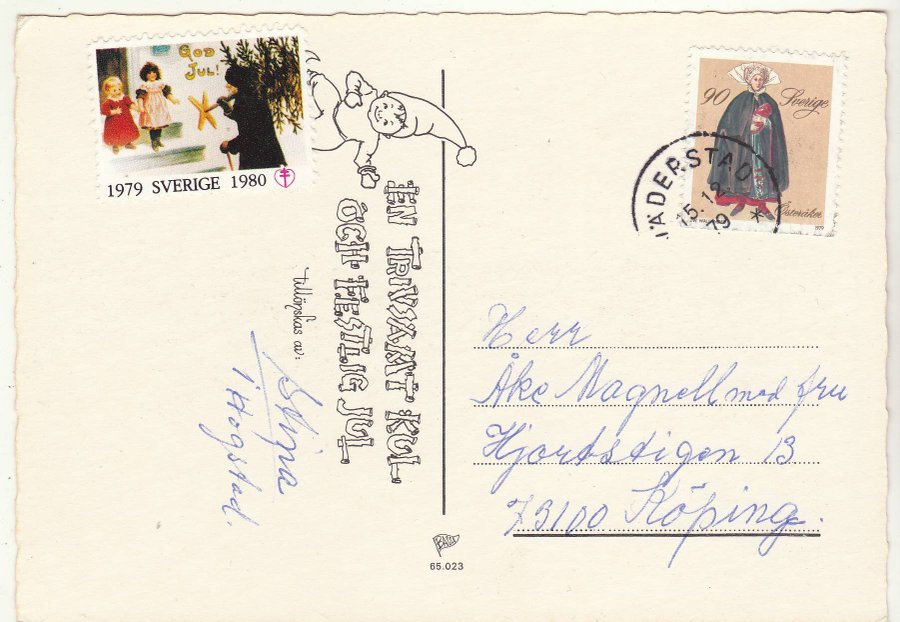 GOD
JUL!
1979 SVERIGE 1980
90 Sverige
Österåker
1979
VÄDERSTAD
15.12.
79
EN TRIVSAMT KUL-
OCH FESTLIG JUL
tillönskas av:
Svea
i Hogstad.
Herr
Åke Magnell med fru
Hjortstigen 13
73100 Köping.
65.023